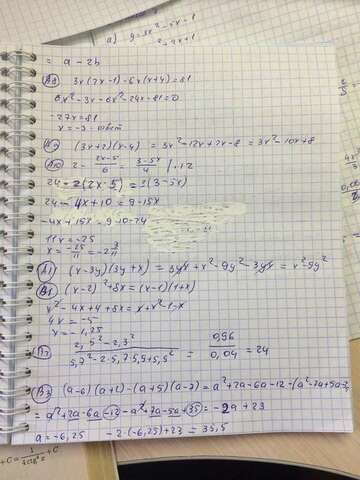 a) y = 3x² - 5x - 1
= a - 2b
3x(2x-1) - 6x(x+4) = 81
6x² - 3x - 6x² - 24x - 81 = 0
-27x = 81
x = -3 - ответ
(3x+2)(x-4) = 3x² - 12x + 2x - 8 = 3x² - 10x + 8
А10 2 - (2x-5)/6 = (3-5x)/4 / ·12
24 - 2(2x-5) = 3(3-5x)
24 - 4x + 10 = 9 - 15x
-4x + 15x = 9 - 10 - 24
11x = -25
x = -25/11 = -2 3/11
А1) (x-3y)(3y+x) = 3yx + x² - 9y² - 3yx = x² - 9y²
В1 (x-2)² + 8x = (x-1)(1+x)
x² - 4x + 4 + 8x = x + x² - 1 - x
4x = -5
x = -1,25
(2,5² - 2,3²)/(5,7² - 2·5,7·5,5 + 5,5²) = 0,96/0,04 = 24
В3 (a-6)(a+2) - (a+5)(a-7) = a² + 2a - 6a - 12 - (a² - 7a + 5a - 35)
= a² + 2a - 6a - 12 - a² + 7a - 5a + 35 = -2a + 23
a = -6,25 -2·(-6,25) + 23 = 35,5